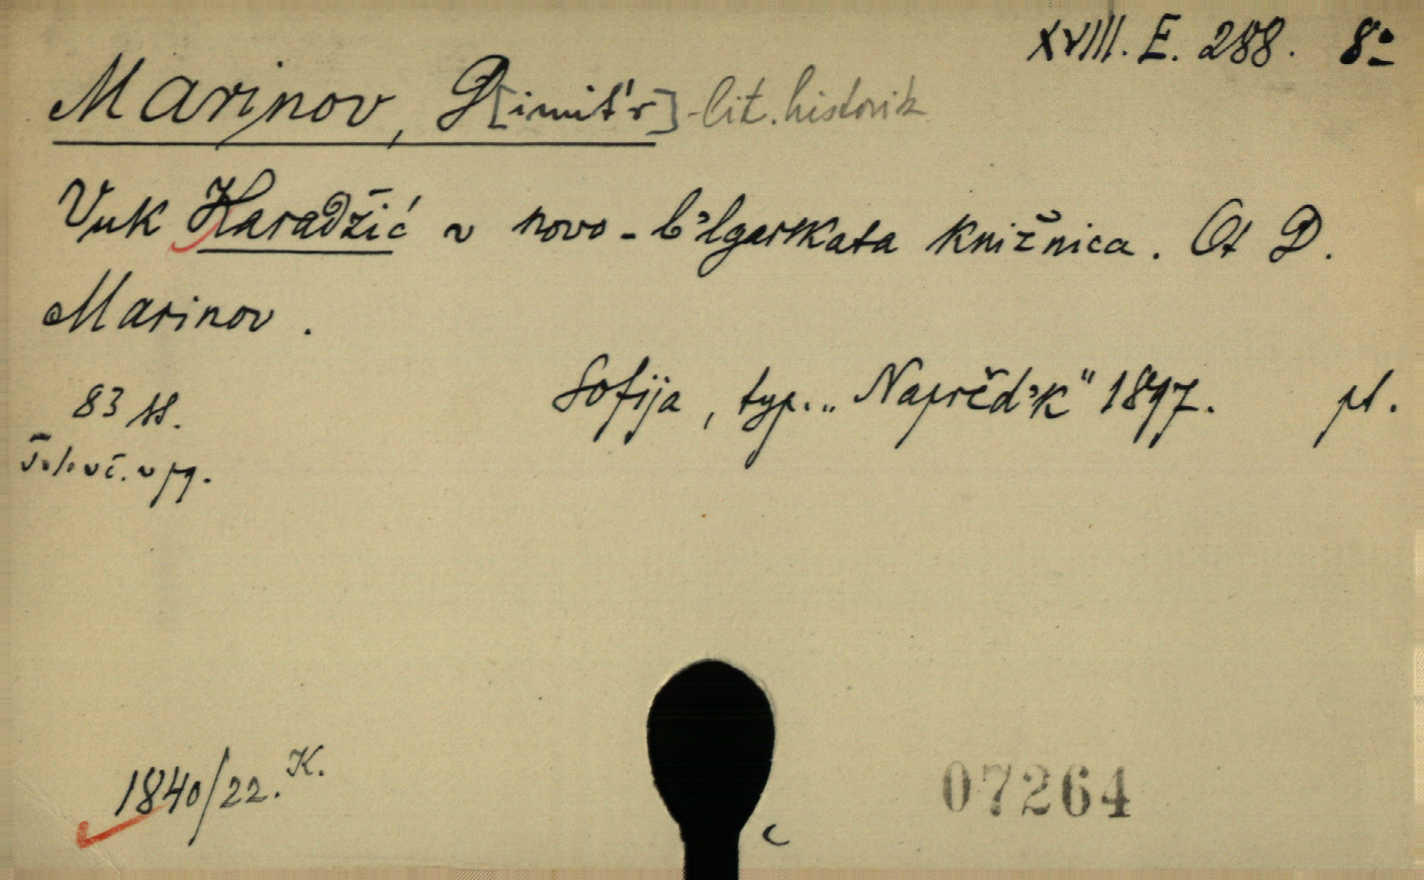 XVIII. E. 288. 8º
Marinov, D[imit'r] - lit. historik
Vuk Karadžić v novo-b'lgarskata knižnica. Ot D.
Marinov.
83 ss. Sofija, typ. „Naprěd'k" 1897. pl.
v pg.
1840/22. K.
07264
c